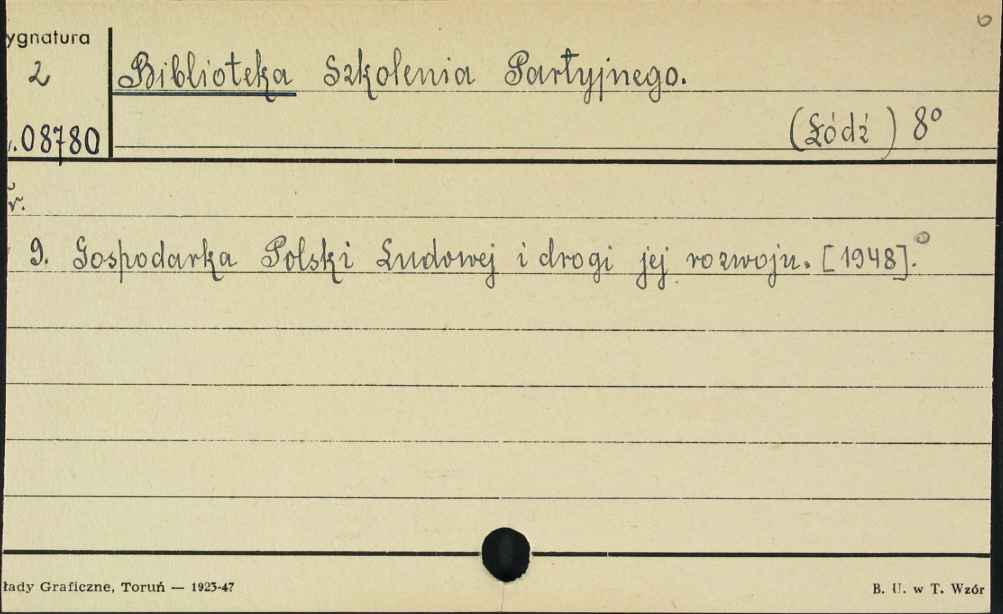 ygnatura
2
Biblioteka Szkolenia Partyjnego.
.08780
(Łódź) 8°
r.
9. Gospodarka Polski Ludowej i drogi jej rozwoju. [1948].
łady Graficzne, Toruń — 1925-47
B. U. w T. Wzór